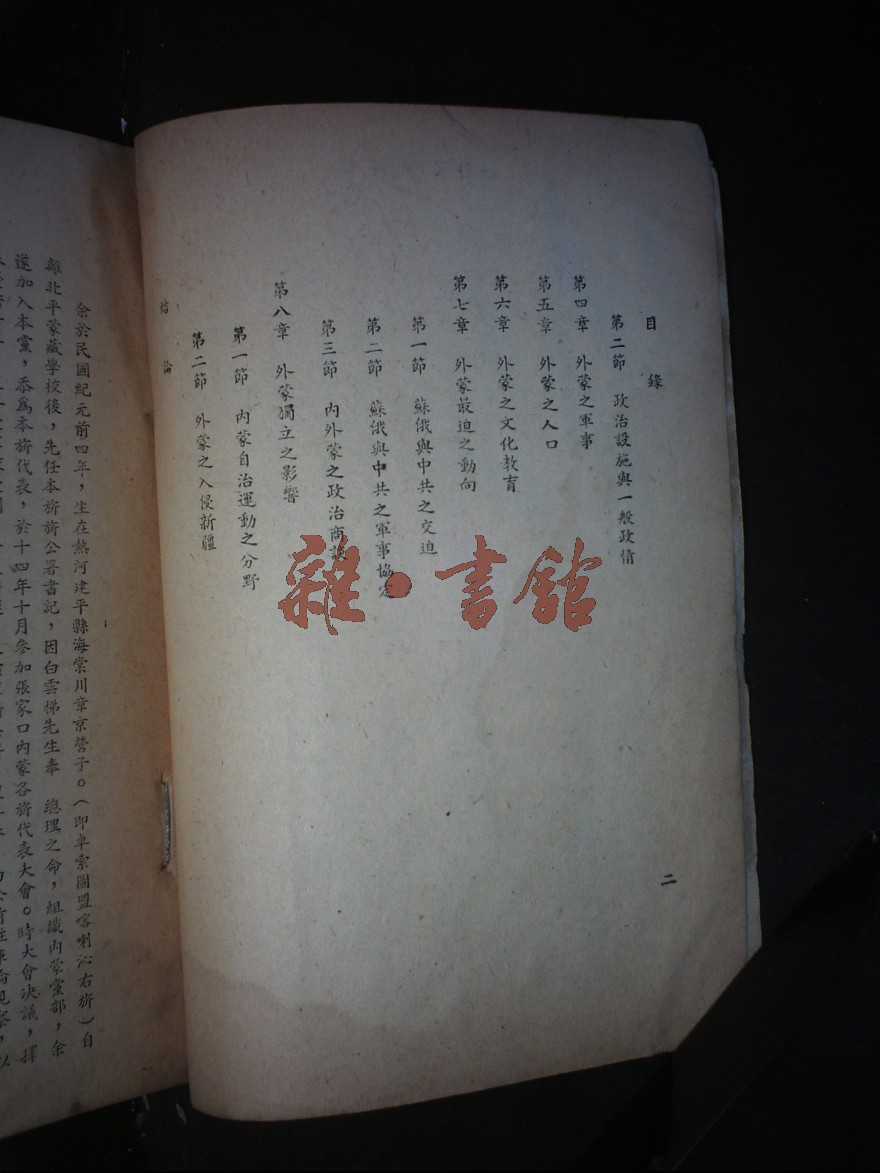 目錄
第二節 政治設施與一般政情
第四章 外蒙之軍事
第五章 外蒙之人口
第六章 外蒙之文化教育
第七章 外蒙最近之動向
第一節 蘇俄與中共之交迫
第二節 蘇俄與中共之軍事協定
第三節 內外蒙之政治商談
第八章 外蒙獨立之影響
第一節 內蒙自治運動之分野
第二節 外蒙之入侵新疆
結論
二
雜·書館
余於民國紀元前四年，生在熱河建平縣海棠川章京營子。（即卓索圖盟喀喇沁右旂）自
離北平蒙藏學校後，先任本旂旂公署書記，因白雲梯先生奉 總理之命，組織內蒙黨部，余
遂加入本黨，忝爲本旂代表，於十四年十月參加張家口內蒙各旂代表大會。時大會決議，擇